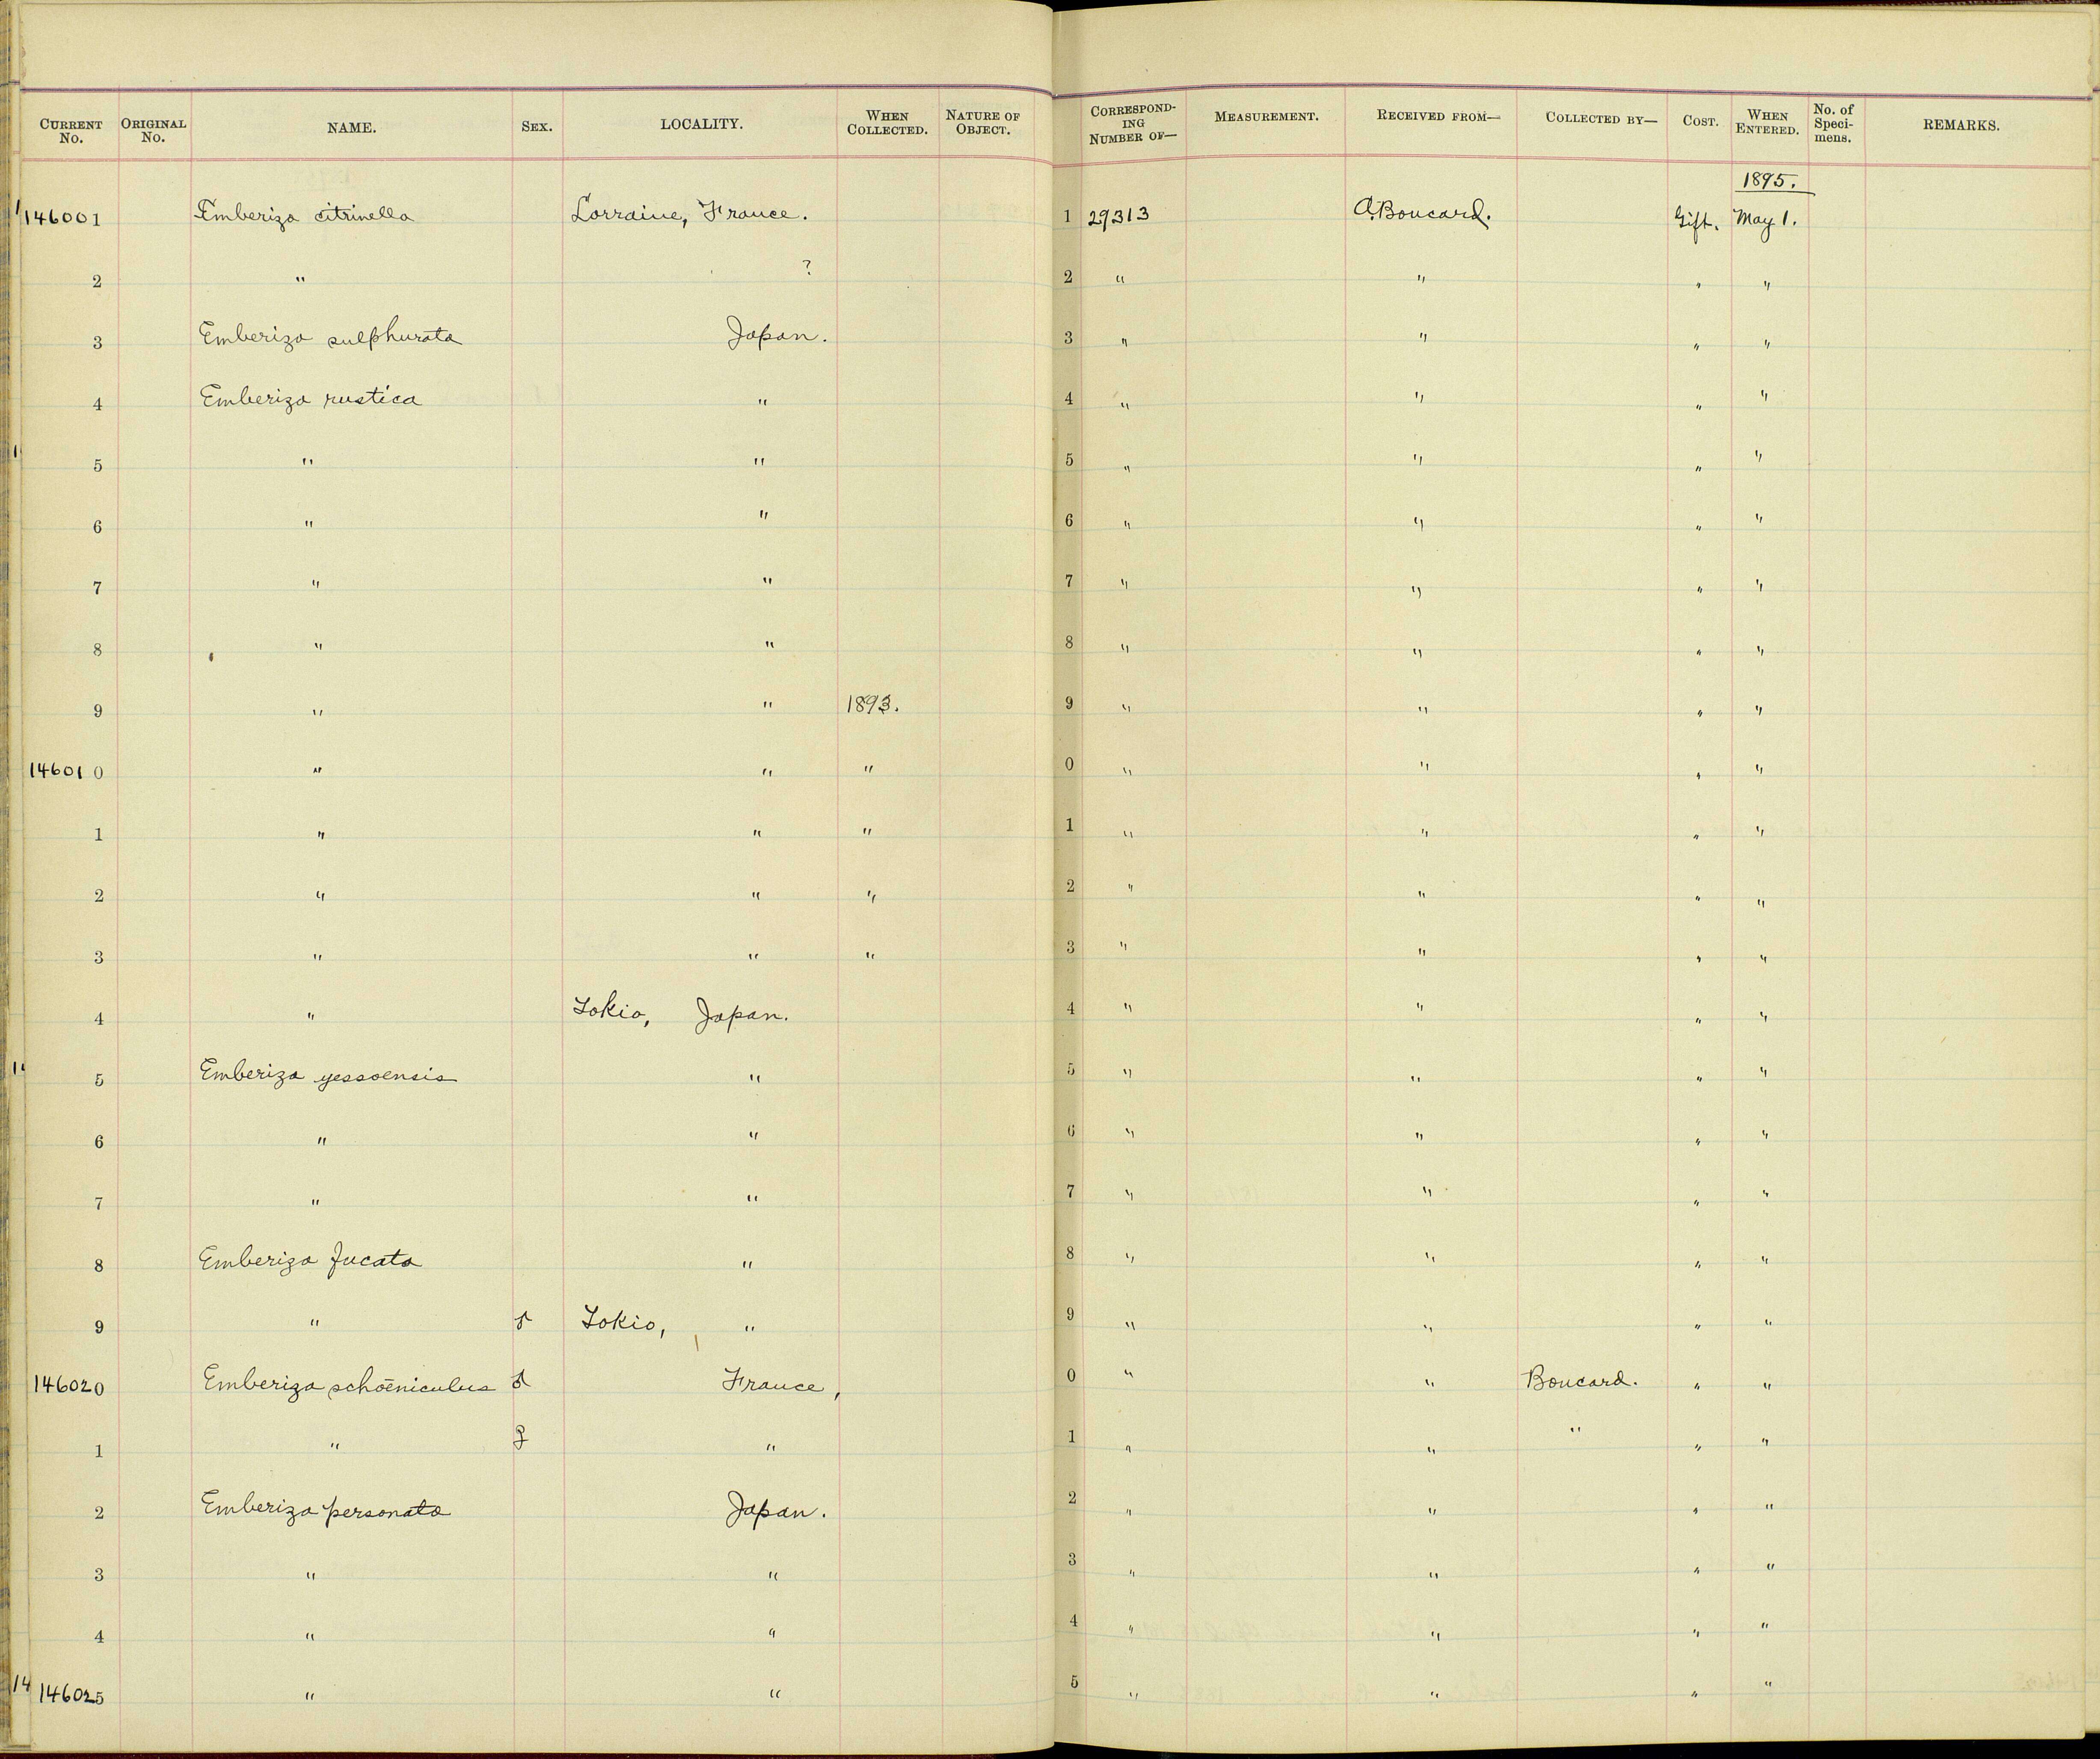 CURRENT No. ORIGINAL No. NAME. SEX. LOCALITY. WHEN COLLECTED. NATURE OF OBJECT. CORRESPOND-ING NUMBER OF— MEASUREMENT. RECEIVED FROM— COLLECTED BY— COST. WHEN ENTERED. No. of Speci-mens. REMARKS.
1895.
146001 Emberiza citrinella Lorraine, France. 1 29313 A. Boucard. Gift. May 1.
2 " ? 2 " " " "
3 Emberiza sulphurata Japan. 3 " " " "
4 Emberiza rustica " 4 " " " "
5 " " 5 " " " "
6 " " 6 " " " "
7 " " 7 " " " "
8 " " 8 " " " "
9 " " 1893. 9 " " " "
146010 " " " 0 " " " "
1 " " " 1 " " " "
2 " " " 2 " " " "
3 " " " 3 " " " "
4 " Tokio, Japan. 4 " " " "
5 Emberiza yessoensis " 5 " " " "
6 " " 6 " " " "
7 " " 7 " " " "
8 Emberiza fucata " 8 " " " "
9 " ♂ Tokio, " 9 " " " "
146020 Emberiza schoeniculus ♂ France, 0 " " Boucard. " "
1 " ♀ " 1 " " " " "
2 Emberiza personata Japan. 2 " " " "
3 " " 3 " " " "
4 " " 4 " " " "
146025 " " 5 " " " "